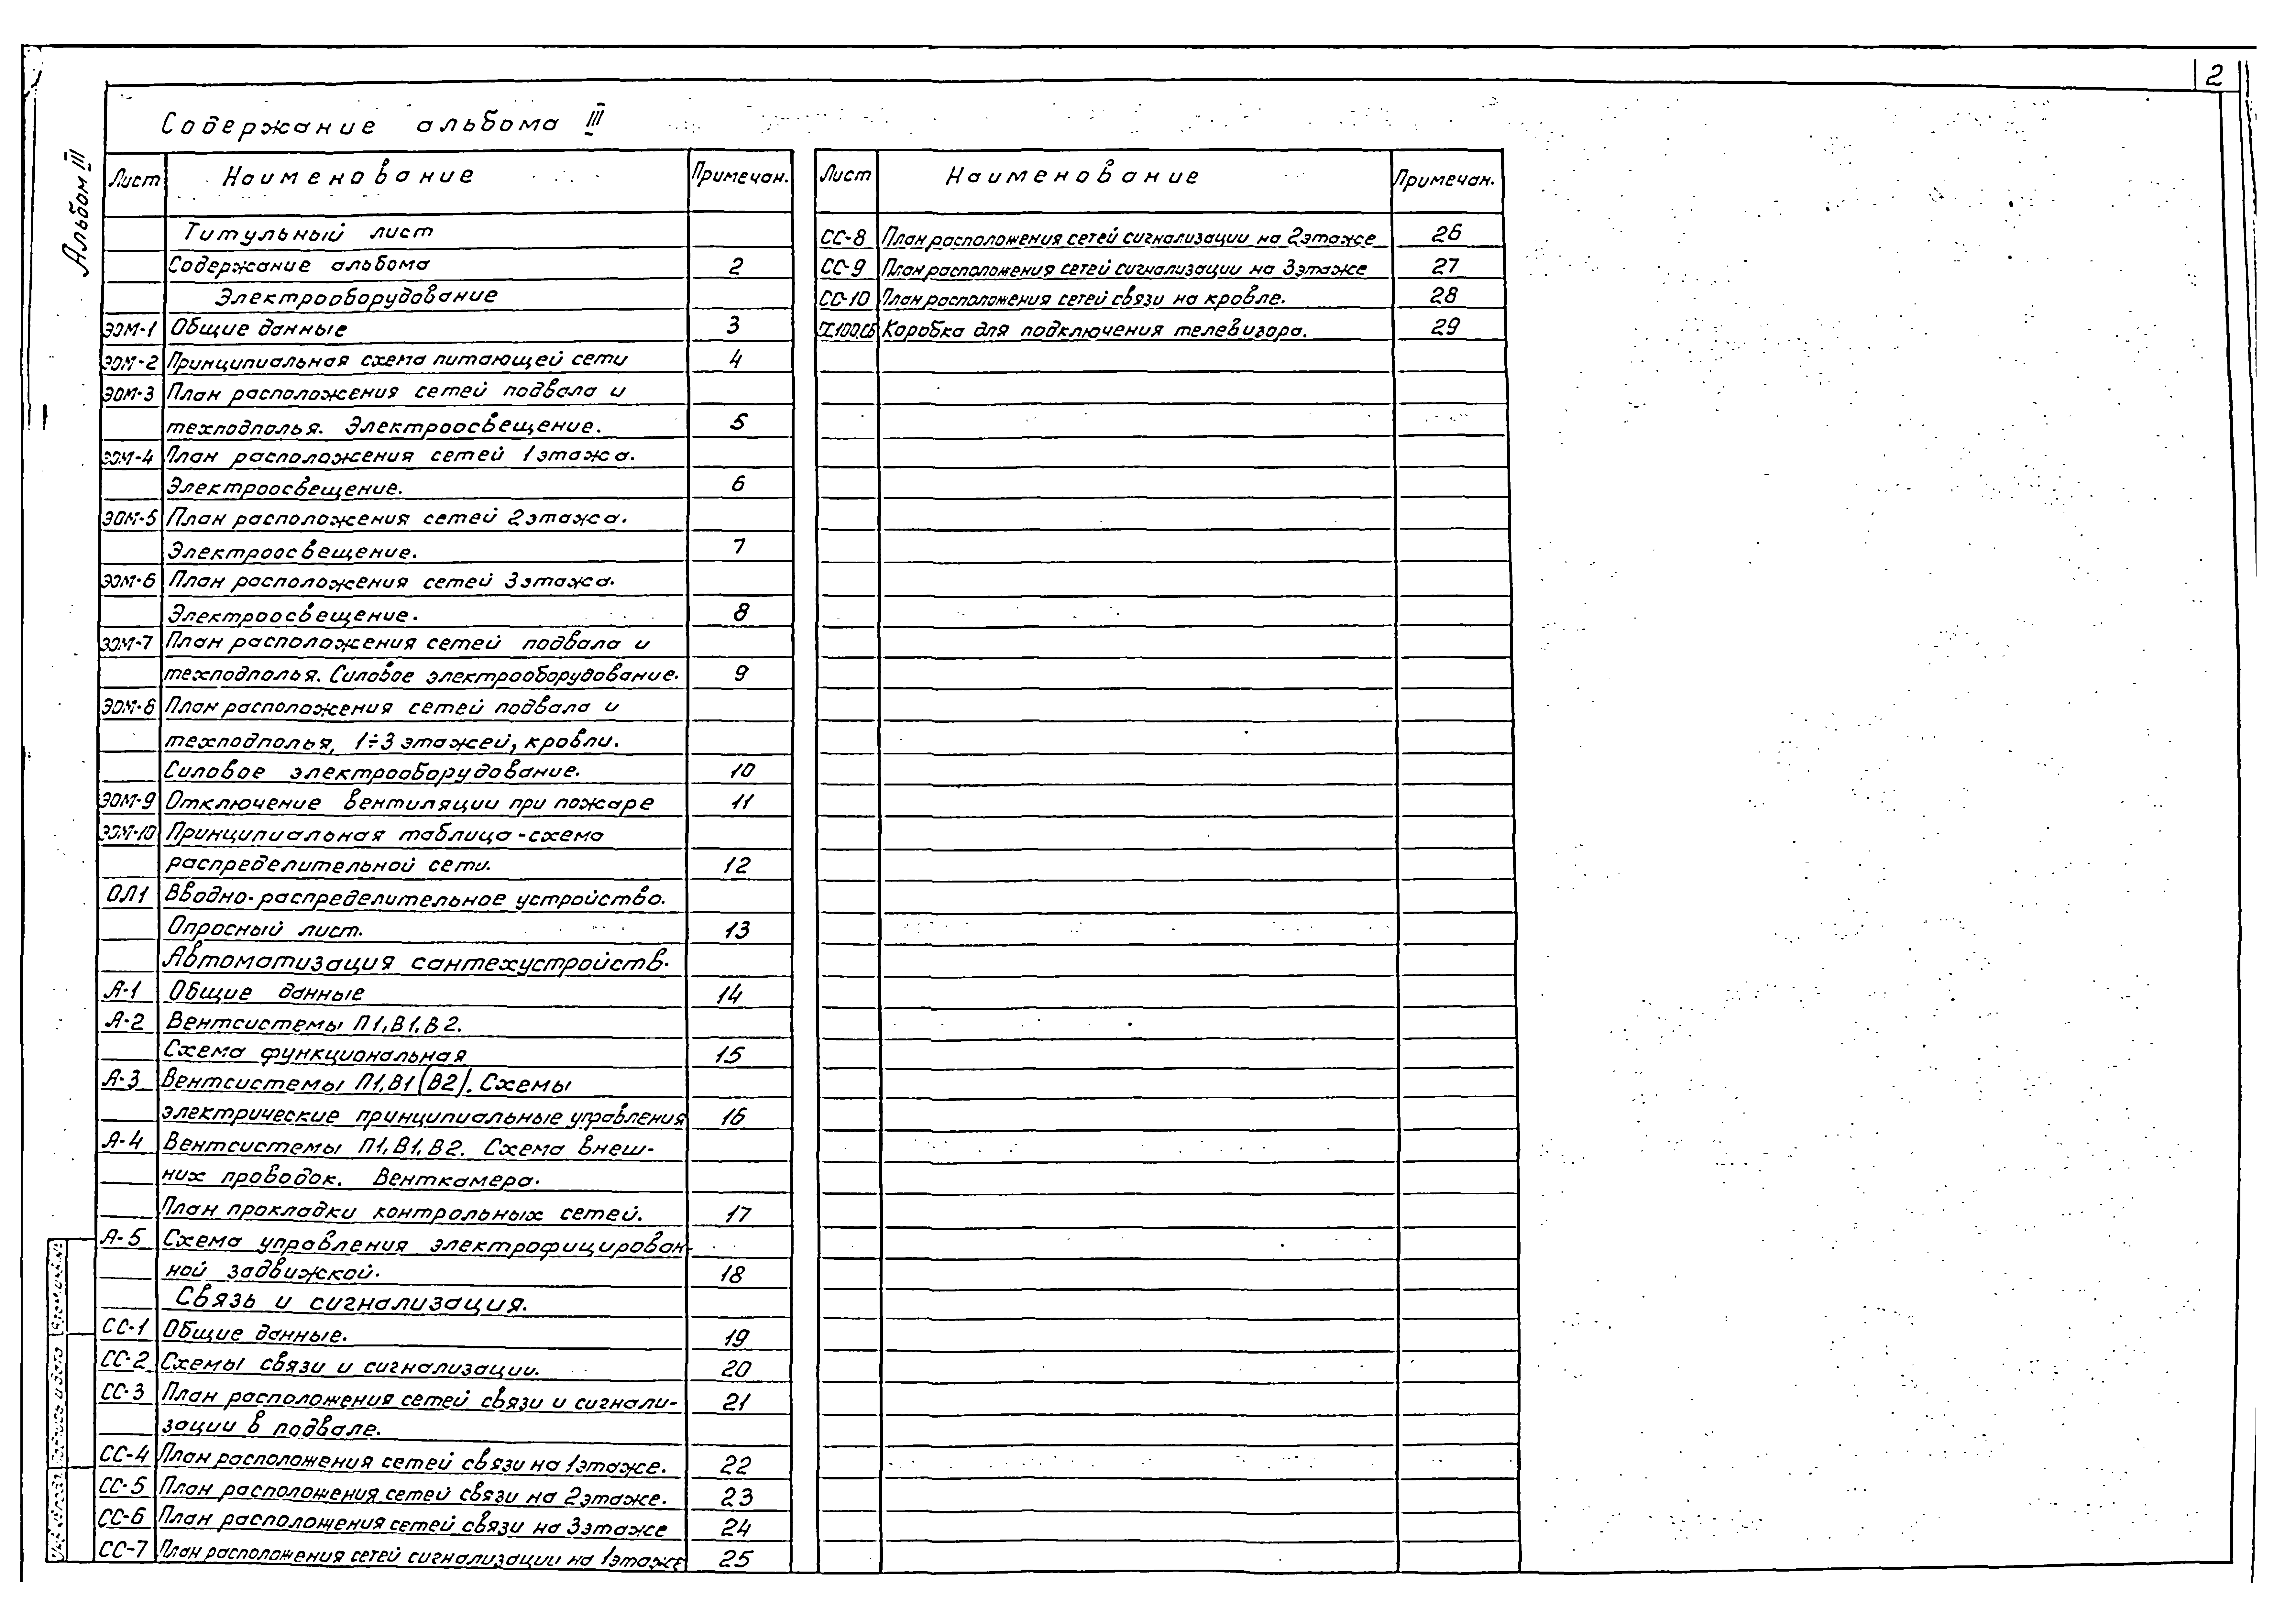 2
Содержание альбома III
Альбом III
Лист Наименование Примечан.
Титульный лист
Содержание альбома 2
Электрооборудование
ЭОМ-1 Общие данные 3
ЭОМ-2 Принципиальная схема питающей сети 4
ЭОМ-3 План расположения сетей подвала и
техподполья. Электроосвещение. 5
ЭОМ-4 План расположения сетей 1 этажа.
Электроосвещение. 6
ЭОМ-5 План расположения сетей 2 этажа.
Электроосвещение. 7
ЭОМ-6 План расположения сетей 3 этажа.
Электроосвещение. 8
ЭОМ-7 План расположения сетей подвала и
техподполья. Силовое электрооборудование. 9
ЭОМ-8 План расположения сетей подвала и
техподполья, 1÷3 этажей, кровли.
Силовое электрооборудование. 10
ЭОМ-9 Отключение вентиляции при пожаре 11
ЭОМ-10 Принципиальная таблица-схема
распределительной сети. 12
ОЛ1 Вводно-распределительное устройство.
Опросный лист. 13
Автоматизация сантехустройств.
А-1 Общие данные 14
А-2 Вентсистемы П1, В1, В2.
Схема функциональная 15
А-3 Вентсистемы П1, В1 (В2). Схемы
электрические принципиальные управления 16
А-4 Вентсистемы П1, В1, В2. Схема внеш-
них проводок. Венткамера.
План прокладки контрольных сетей. 17
А-5 Схема управления электрофицирован-
ной задвижкой. 18
Связь и сигнализация.
СС-1 Общие данные. 19
СС-2 Схемы связи и сигнализации. 20
СС-3 План расположения сетей связи и сигнали- 21
зации в подвале.
СС-4 План расположения сетей связи на 1 этаже. 22
СС-5 План расположения сетей связи на 2 этаже. 23
СС-6 План расположения сетей связи на 3 этаже 24
СС-7 План расположения сетей сигнализации на 1 этаже 25
Лист Наименование Примечан.
СС-8 План расположения сетей сигнализации на 2 этаже 26
СС-9 План расположения сетей сигнализации на 3 этаже 27
СС-10 План расположения сетей связи на кровле. 28
Коробка для подключения телевизора. 29